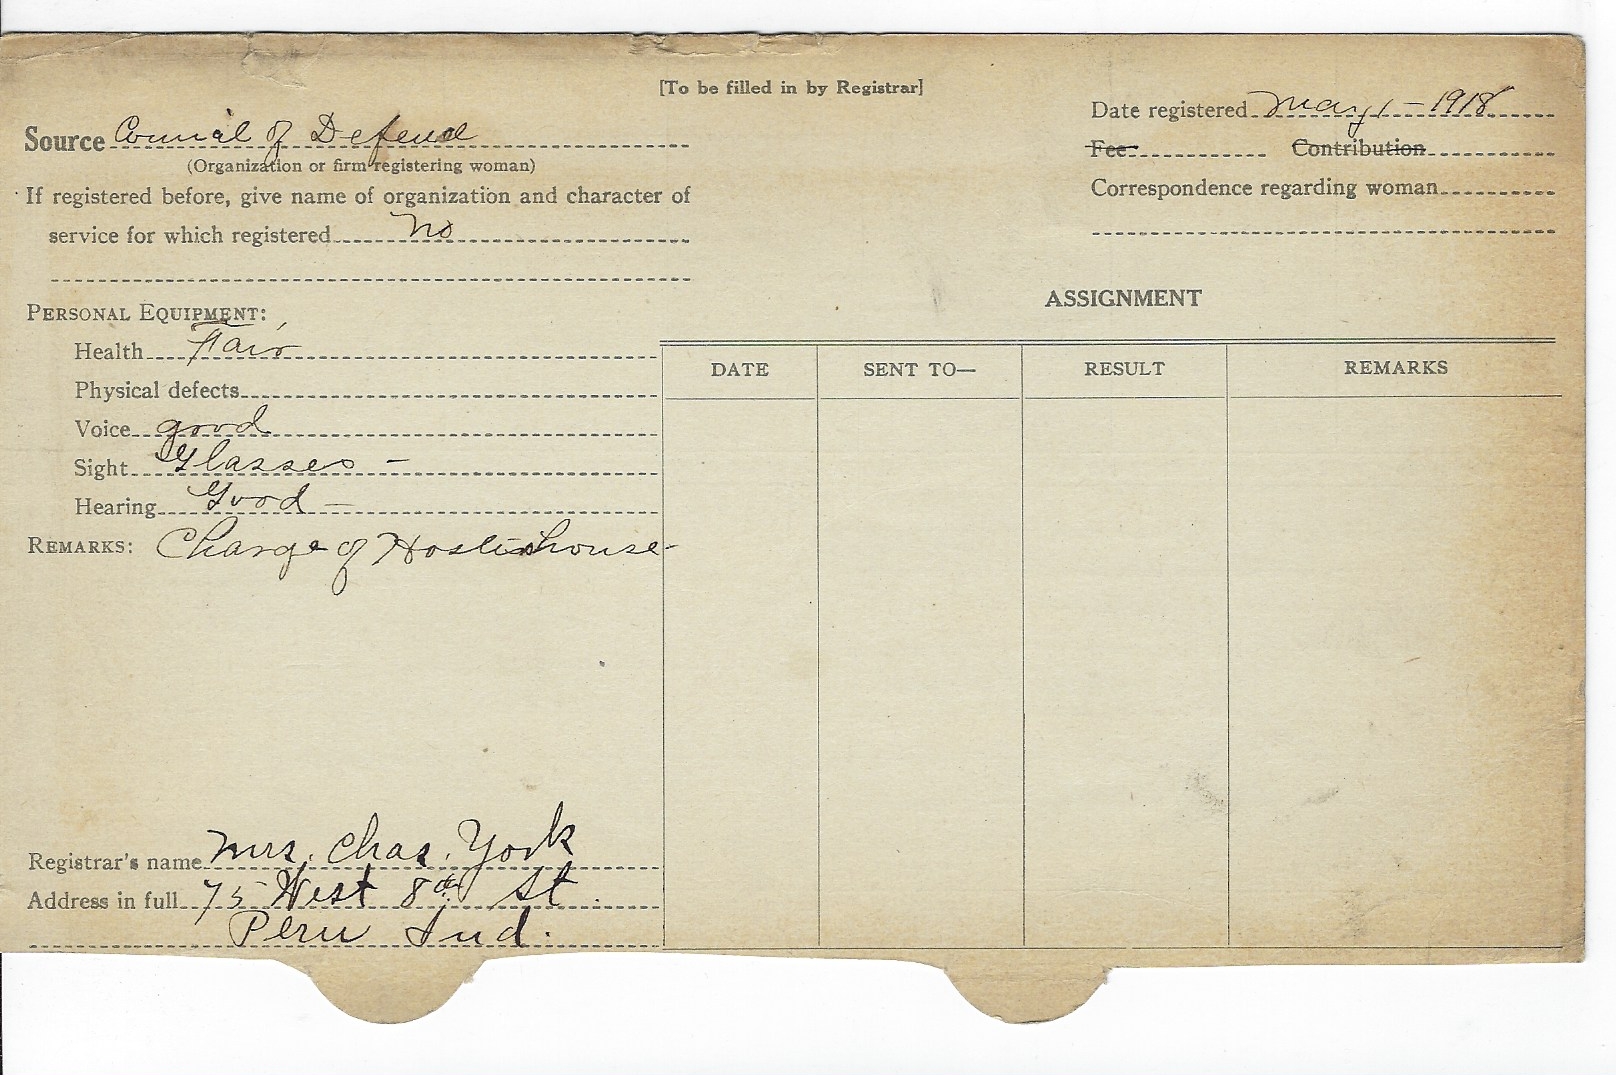 [To be filled in by Registrar]
Source Council of Defense
(Organization or firm registering woman)
If registered before, give name of organization and character of
service for which registered No
Date registered May 1 - 1918
Fee Contribution
Correspondence regarding woman
PERSONAL EQUIPMENT:
Health Fair
Physical defects
Voice good
Sight Glasses -
Hearing Good -
REMARKS: Charge of
ASSIGNMENT
DATE SENT TO— RESULT REMARKS
Registrar's name Mrs. Chas. York
Address in full 75 West 8th St.
Peru Ind.